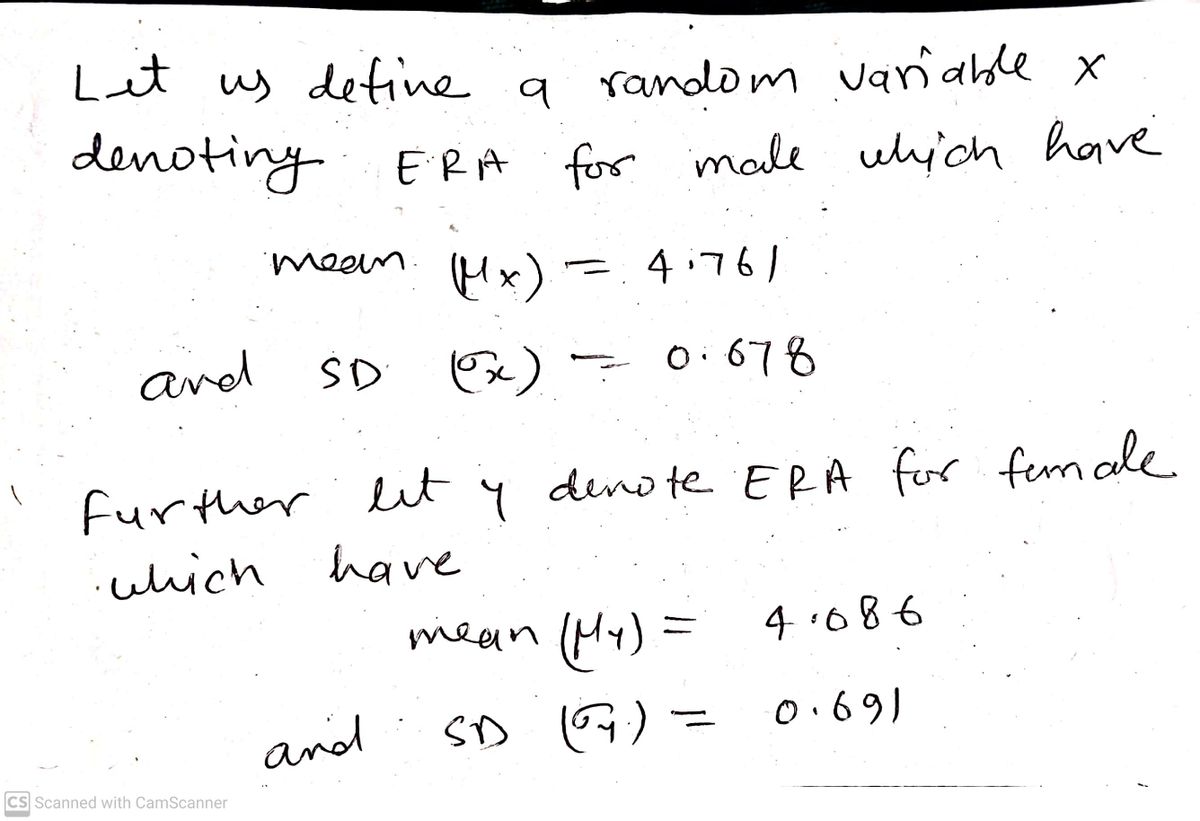 Let us define a random variable x
denoting ERA for male which have
mean (μx) = 4.761
and SD (σx) = 0.678
Further let y denote ERA for female
which have
mean (μy) = 4.086
and SD (σy) = 0.691
CS Scanned with CamScanner